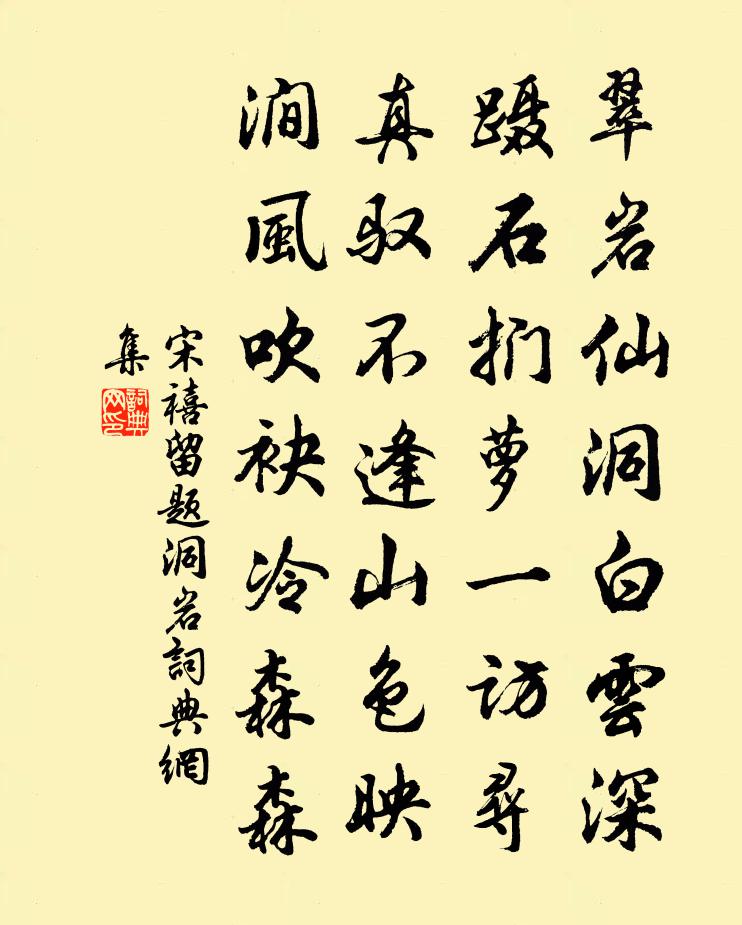 翠岩仙洞白雲深
蹑石扪萝一访尋
真驭不逢山色映
涧風吹袂冷森森
宋禧留题洞岩詞典網
集
詞典
网印